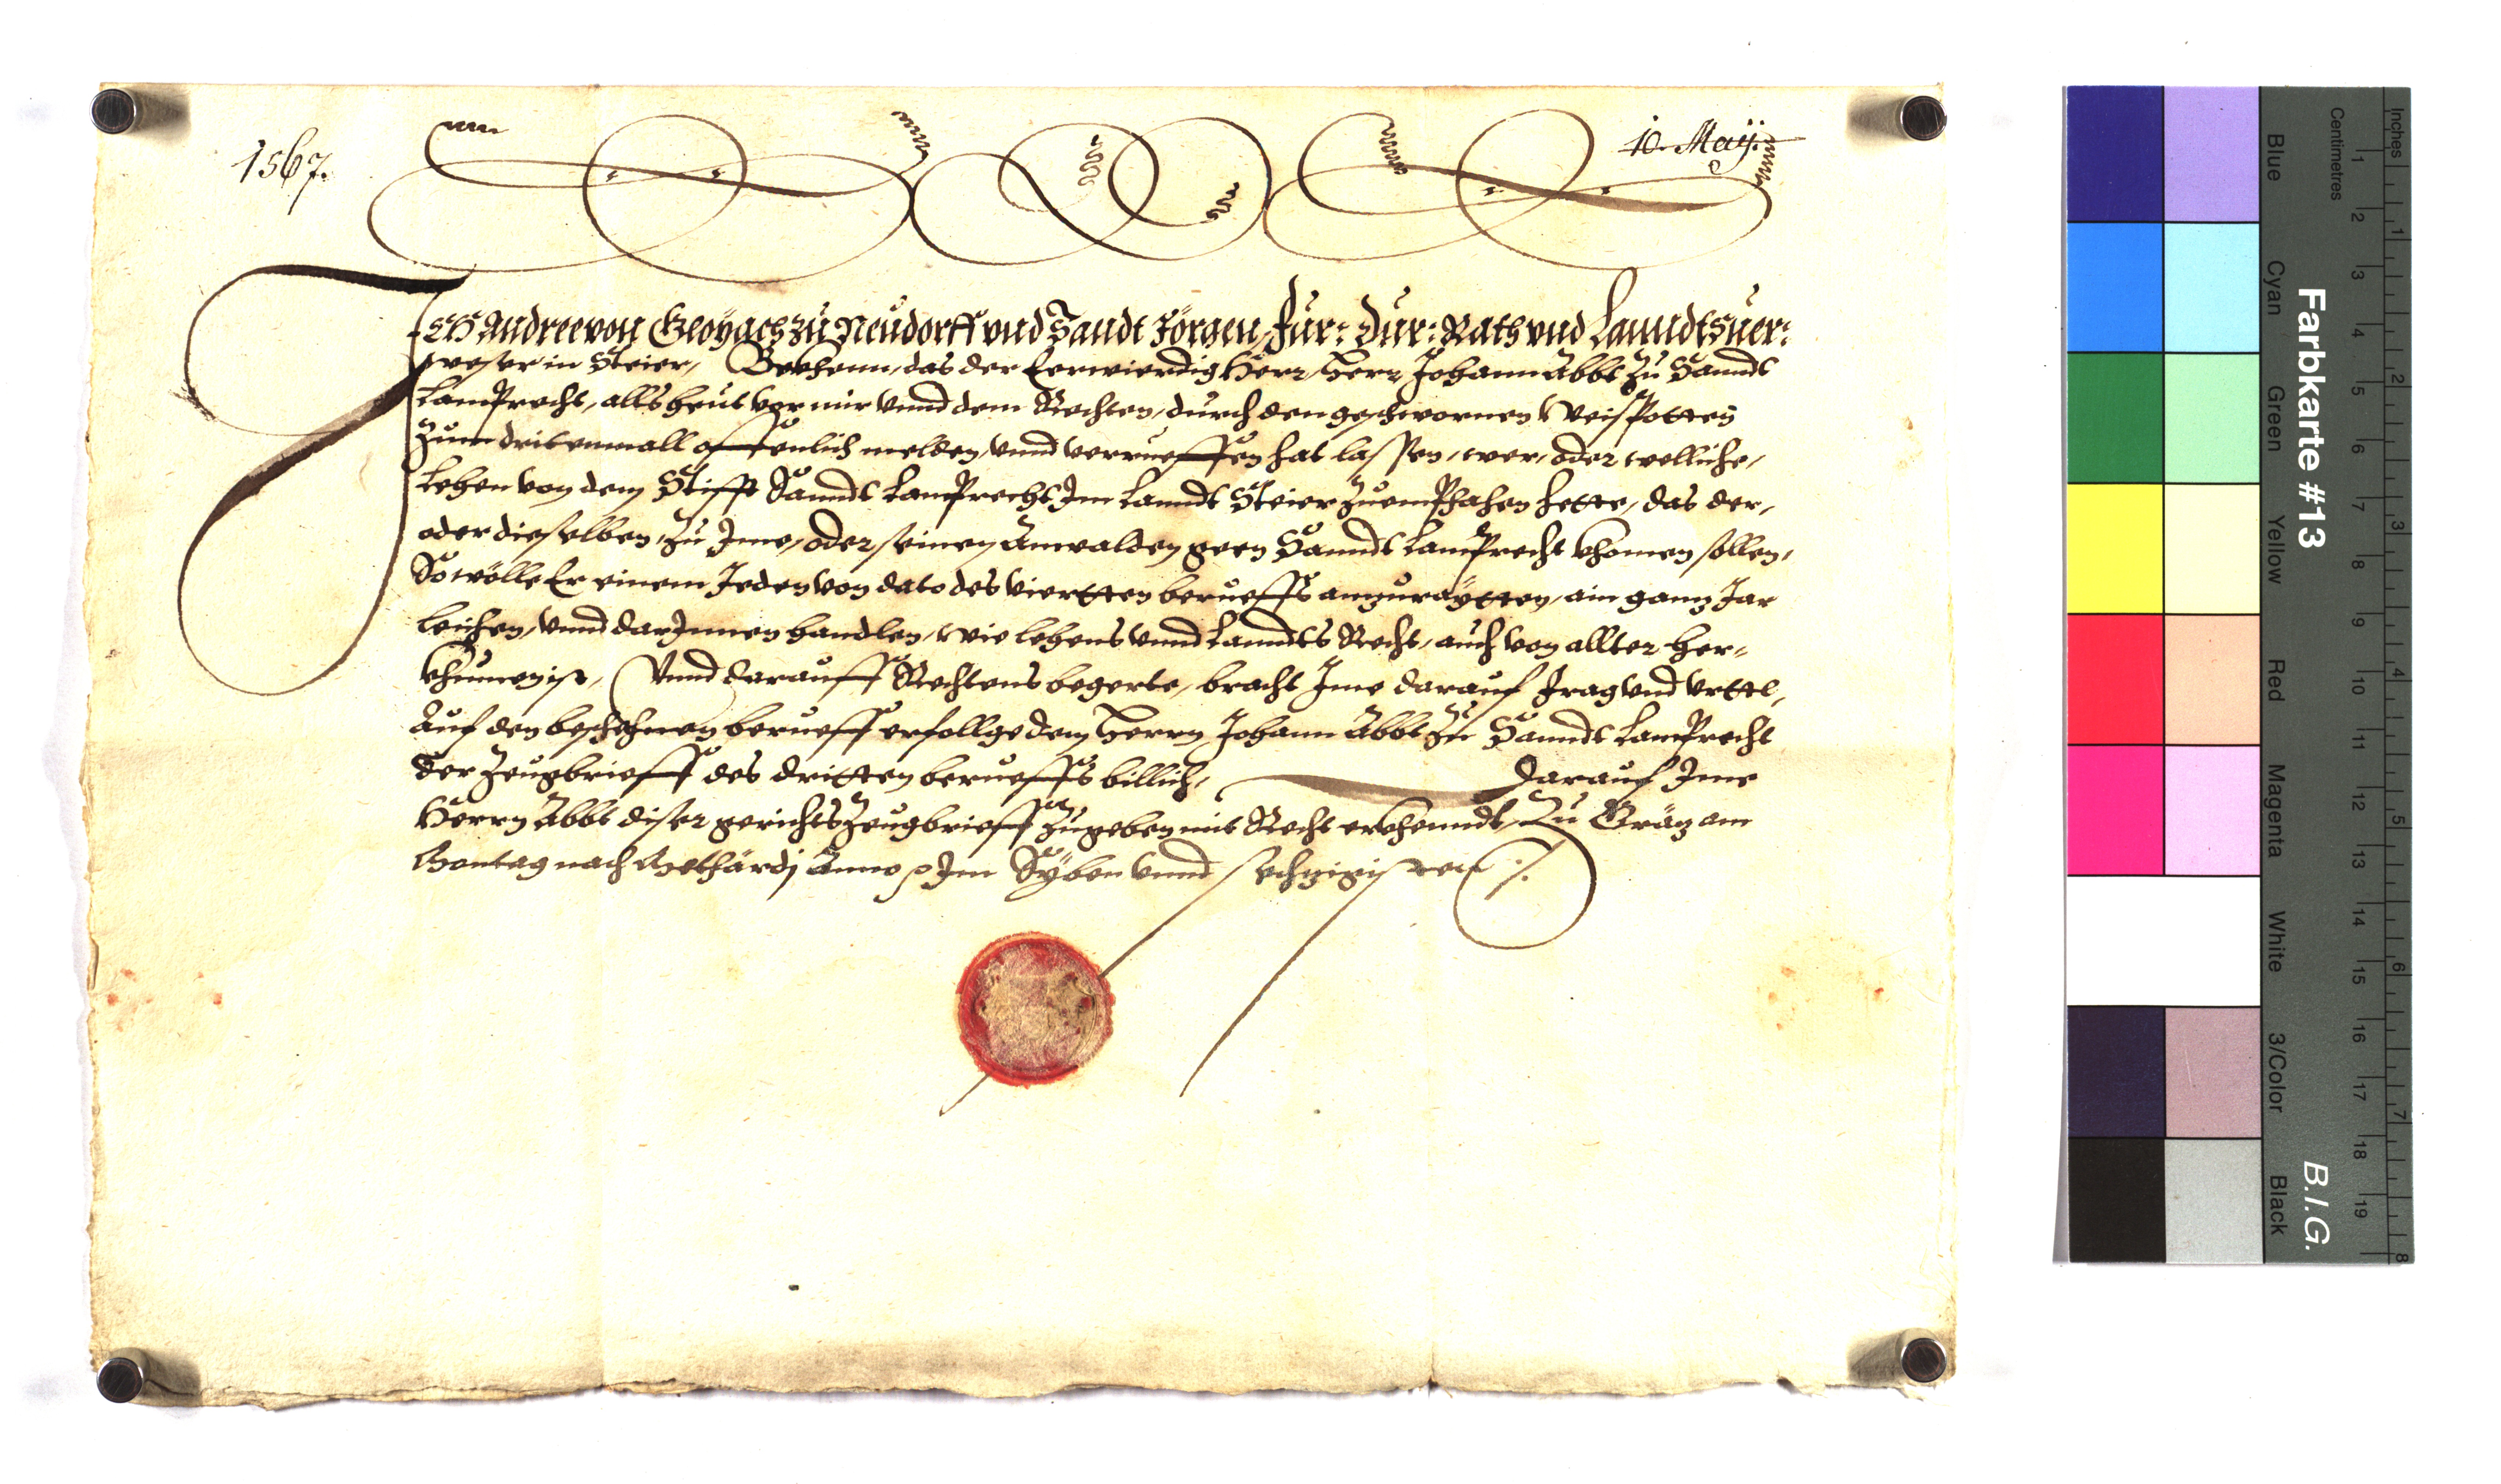 1567.
10. Maÿ.
Ich Andree von Gloÿach zu Neudorff vnd Sandt Jörgen, Für: Dur: Rath vnd Lanndtsuer:
weser in Steier, Bekhenn, das der Eerwierdig Herr, Herr Johann Abbt zu Sanndt
Lamprecht, alls heut vor mir vnnd dem Rechten, durch den geschwornen Weispotten
zum dritenmall offenlich melden, vnnd verrueffen hat lassen, wer, oder welliche,
Lehen von dem Stifft Sanndt Lamprecht Im Lanndt Steier zuemphahen hette, das der,
oder dieselben, zu Ime, oder seinen Anwalden geen Sanndt Lamprecht khomen sollen,
So wölle Er einem Jeden von dato des viertten berueffs anzuraÿtten, ain ganz Jar
leichen, vnnd darInnen handlen, wie lehens vnnd Lanndts Recht, auch von allter her-
khumen ist, Vnnd darauff Rechtens begerte, bracht Ime darauf Frag vnd Vrttl,
Auf den beschehnen berueff erfollge dem Herrn Johann Abbt zu Sanndt Lamprecht
der Zeugbrieff des dritten berueffs billich, Darauf Ime
Herrn Abbt diser gerichts Zeugbrieff zugeben mit Recht erkhenndt, Zu Gräz am
Montag nach Gothärdj Anno p Im Syben vnnd sechzigisten
Farbkarte #13
B.I.G.
Inches
Centimetres
1 2 3 4 5 6 7 8 9 10 11 12 13 14 15 16 17 18 19
1 2 3 4 5 6 7 8
Blue
Cyan
Green
Yellow
Red
Magenta
White
3/Color
Black